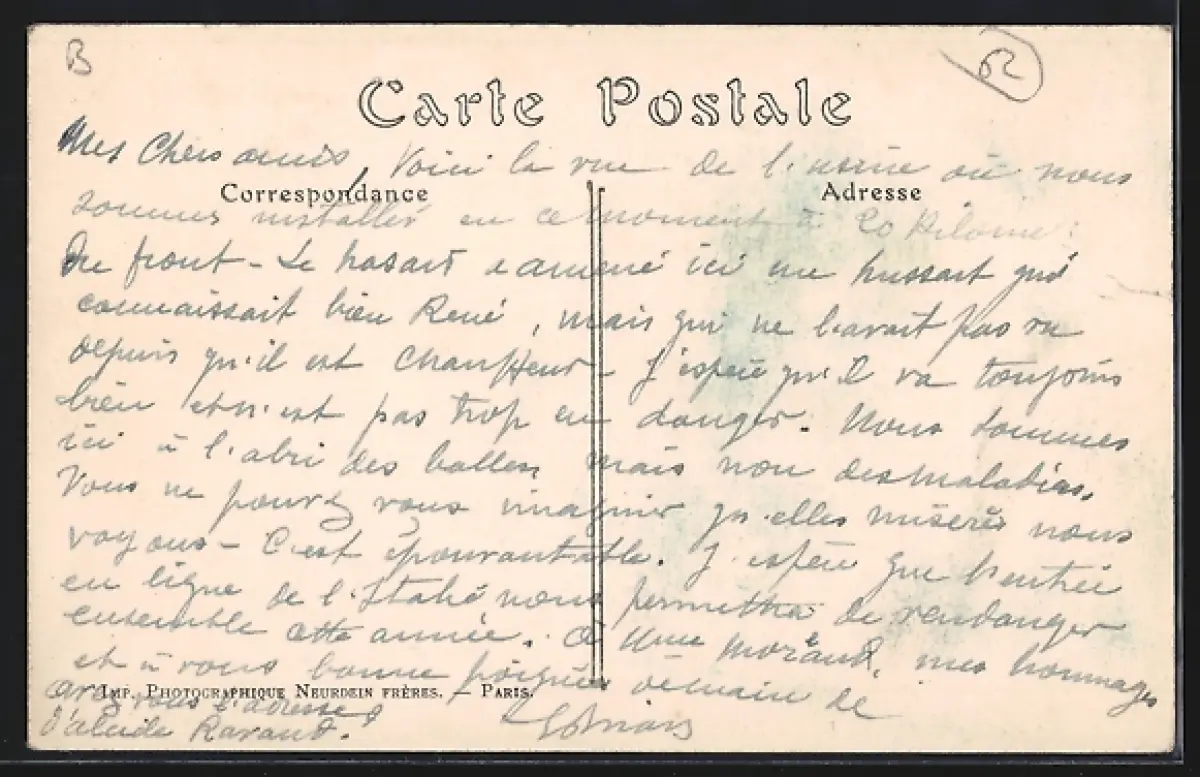 B
52
Carte Postale
Mes Chers amis, Voici la vue de l'usine où nous
Correspondance
Adresse
sommes installés en ce moment à 20 Kilom:
du front - Le hasard a amené ici un hussart qui
connaissait bien René, mais qui ne l'avait pas vu
depuis qu'il est chauffeur - J'espère qu'il va toujours
bien et n'est pas trop en danger. Nous sommes
ici à l'abri des balles, mais non des maladies.
Vous ne pouvez vous imaginer qu'elles misères nous
voyons - C'est épouvantable. J'espère que l'entrée
en ligne de l'Italie nous permettra de vendanger
ensemble cette année. à Mme Morand, mes hommages
et à vous bonne poignée de main de
IMP. PHOTOGRAPHIQUE NEURDEIN FRÈRES. — PARIS.
avez vous l'adresse
d'alcide Ravaud?